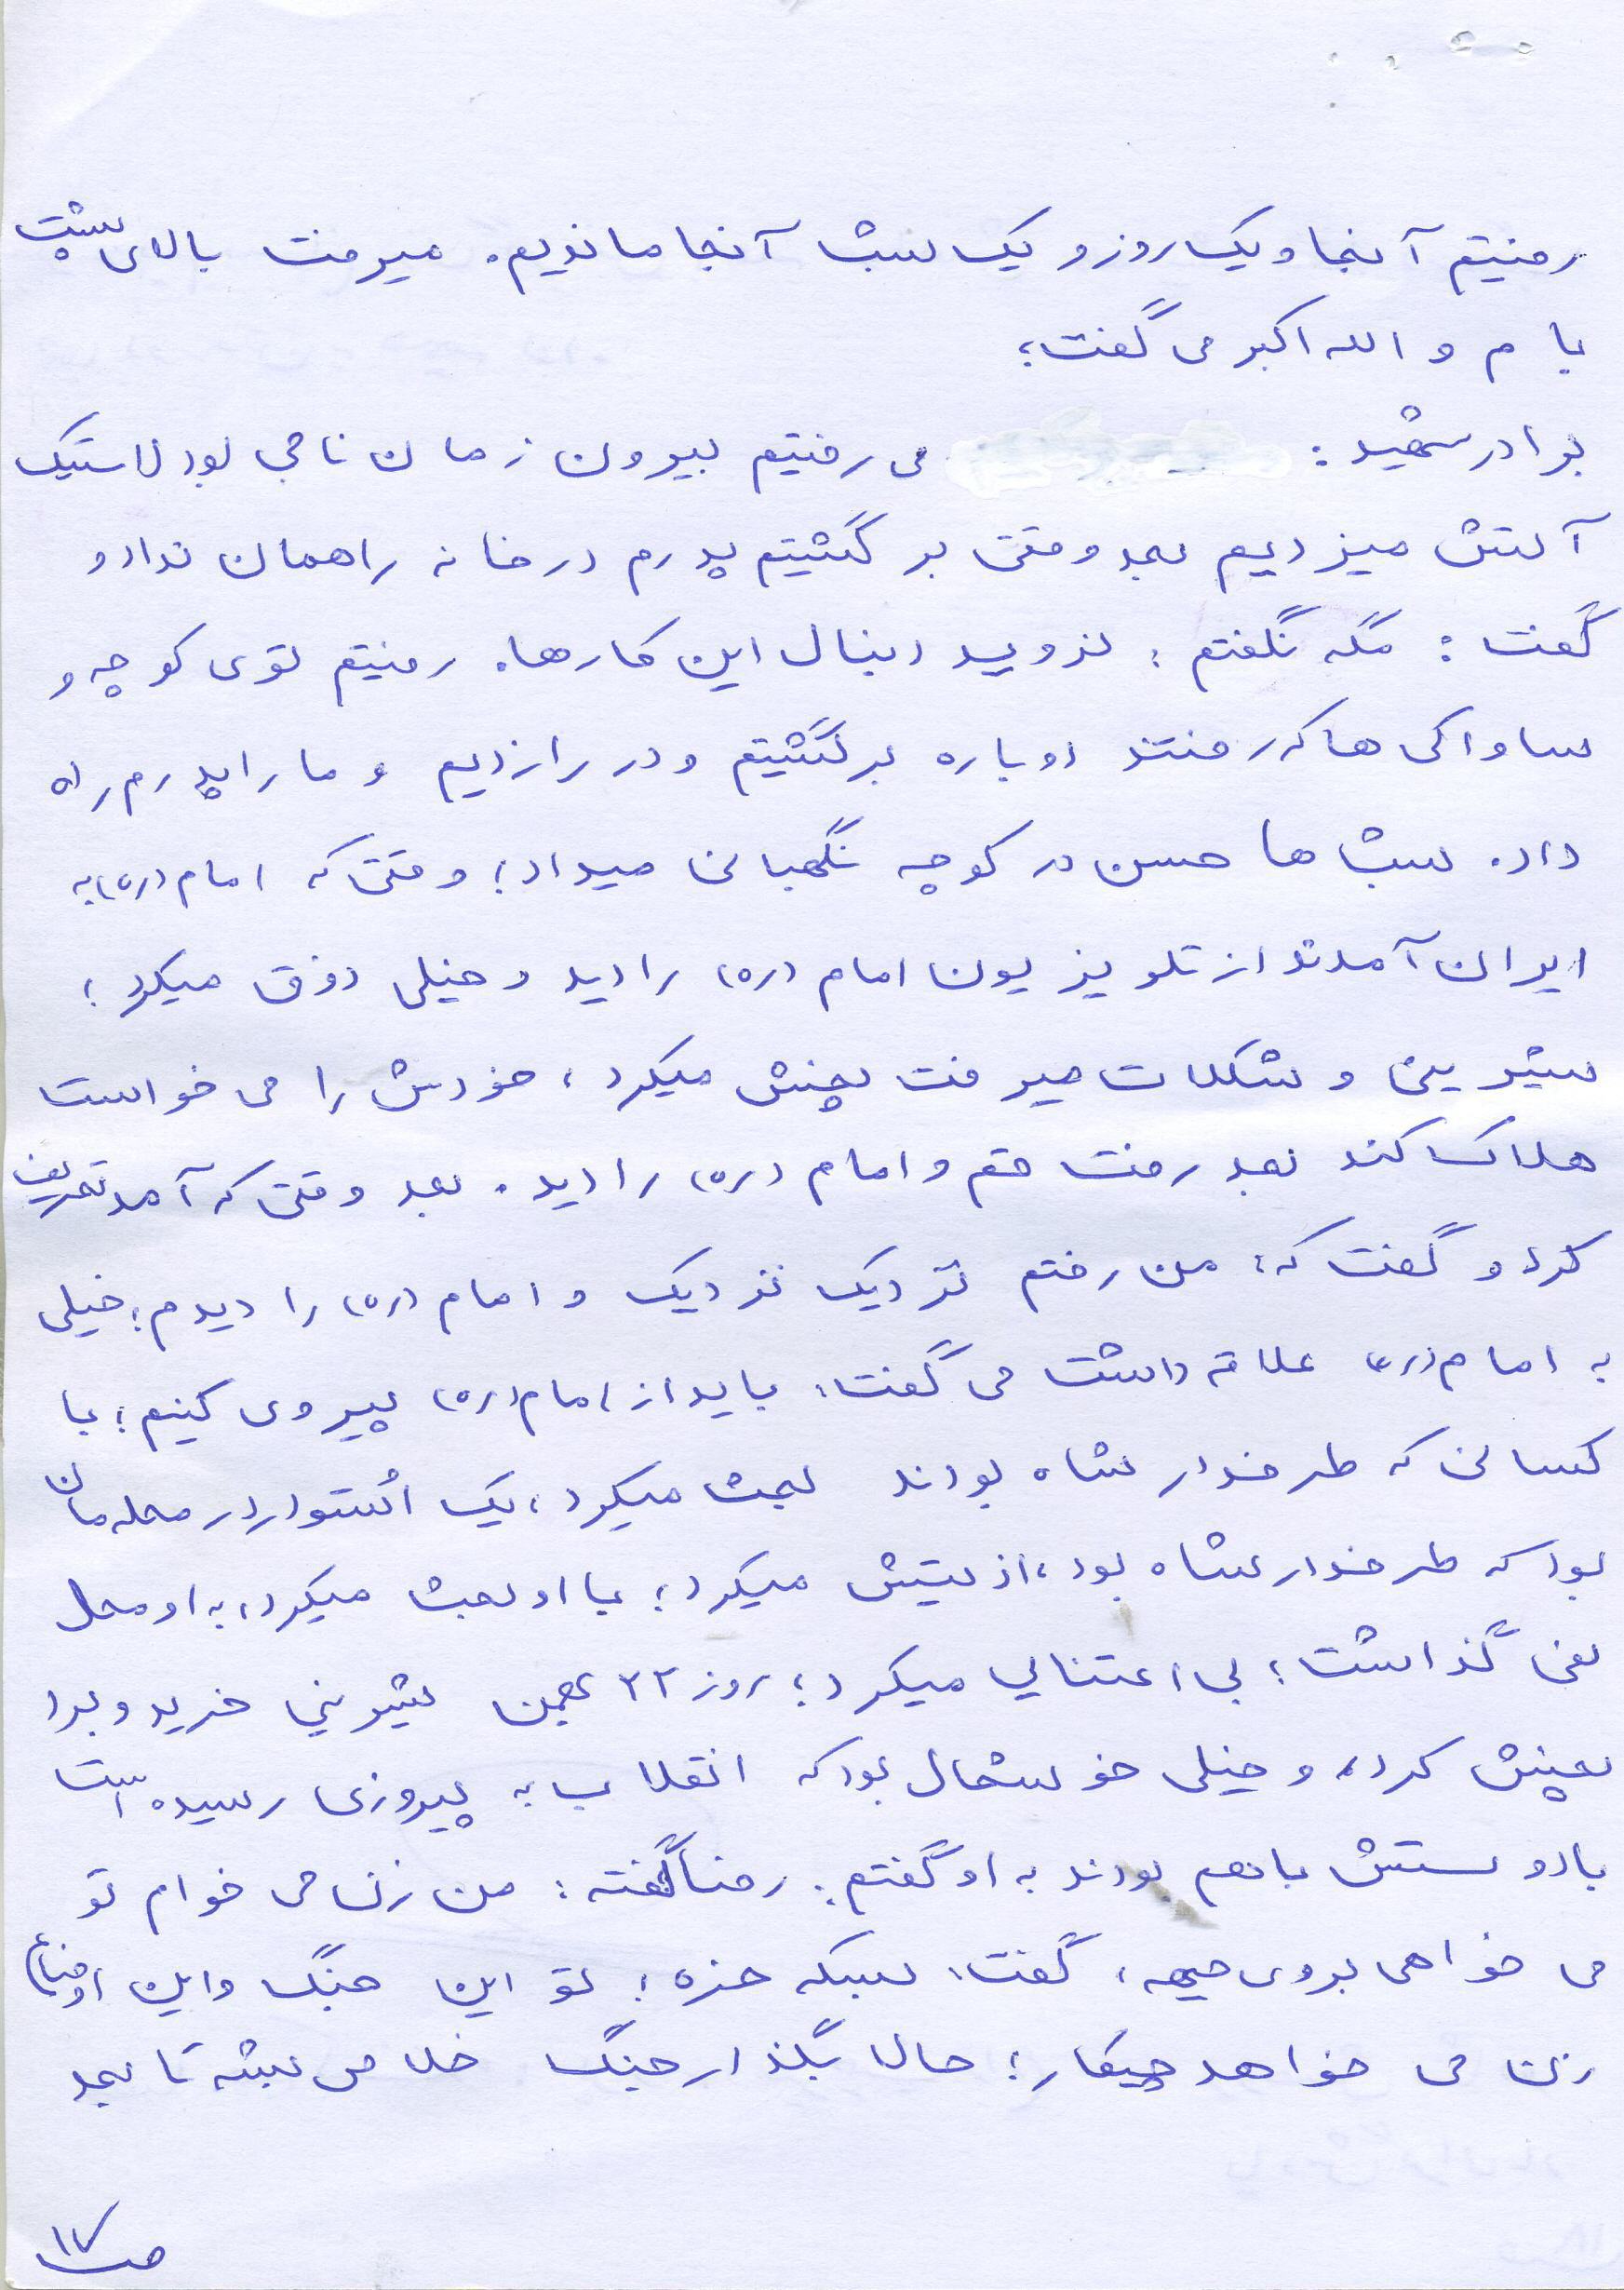 رفتیم آنجا و یک روز و یک شب آنجا ماندیم. میرفت بالای پشت
بام و الله اکبر می گفت؛
برادر شهید: می رفتیم بیرون زمان ناجی بود لاستیک
آتش میزدیم بعد وقتی برگشتیم پدرم در خانه راهمان نداد و
گفت: مگه نگفتم، نروید دنبال این کارها. رفتیم توی کوچه و
ساواکی ها که رفتند دوباره برگشتیم و در را زدیم و ما را پدرم راه
داد. شب ها حسن در کوچه نگهبانی میداد؛ وقتی که امام (ره) به
ایران آمدند از تلویزیون امام (ره) را دید و خیلی ذوق میکرد؛
شیرینی و شکلات میرفت پخش میکرد، خودش را می خواست
هلاک کند بعد رفت قم و امام (ره) را دید. بعد وقتی که آمد تعریف
کرد و گفت که: من رفتم نزدیک نزدیک و امام (ره) را دیدم؛ خیلی
به امام (ره) علاقه داشت می گفت: باید از امام (ره) پیروی کنیم؛ با
کسانی که طرفدار شاه بودند بحث میکرد، یک اُستوار در محله مان
بود که طرفدار شاه بود، اذیتش میکرد؛ با او بحث میکرد، به او محل
نمی گذاشت؛ بی اعتنایی میکرد؛ روز ۲۲ بهمن شیرینی خرید و برد
پخش کرد، و خیلی خوشحال بود که انقلاب به پیروزی رسیده است
با دوستش باهم بودند به او گفتم: رضا گفته: من زن می خوام تو
می خواهی بروی جبهه، گفت: سبکه خره؛ تو این جنگ و این اوضاع
زن می خواهد چیکار؛ حالا بگذار جنگ خلاص بشه تا بعد
ص ۱۷